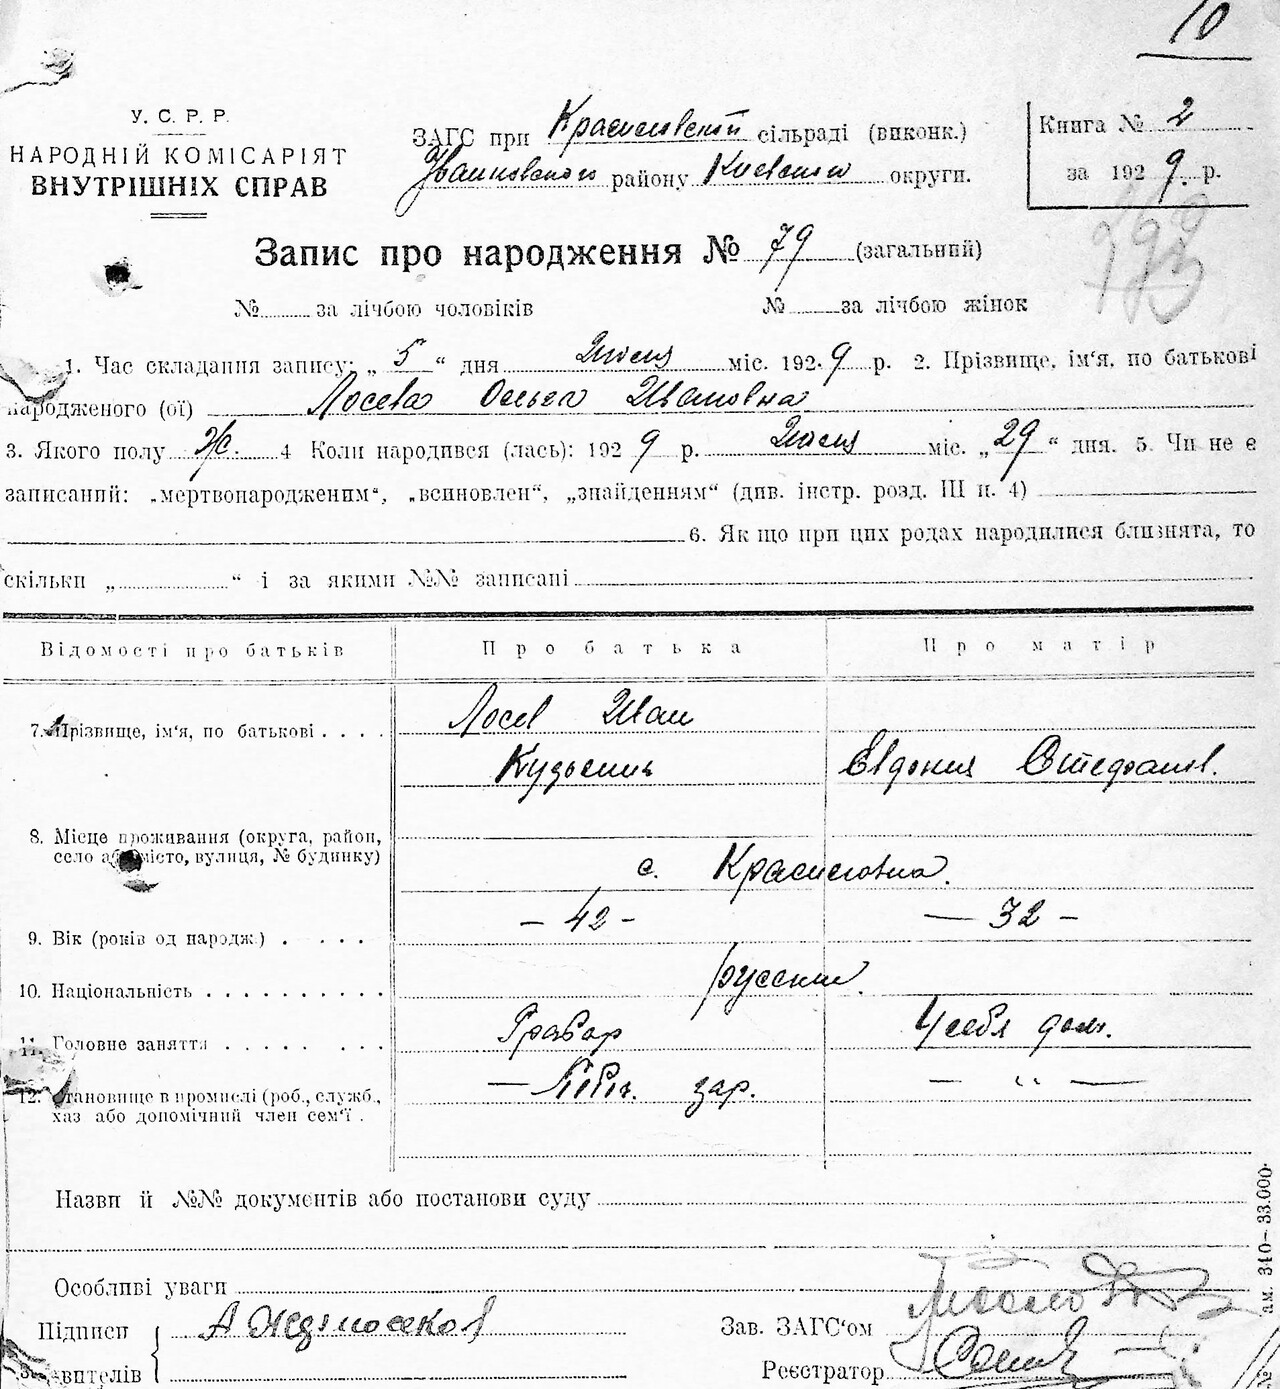 10
У. С. Р. Р.
НАРОДНІЙ КОМІСАРІЯТ
ВНУТРІШНІХ СПРАВ
ЗАГС при Красиловский сільраді (виконк.)
Иванковского району Киевского округи.
Книга № 2
за 1929. р.
Запис про народження № 79 (загальний)
№ за лічбою чоловіків № за лічбою жінок
1. Час складання запису: „ 5 “ дня Июля міс. 1929 р. 2. Прізвище, ім'я, по батькові
народженого (ої) Лосева Ольга Ивановна
3. Якого полу ж. 4 Коли народився (лась): 1929 р. Июля міс. „29“ дня. 5. Чи не є
записаний: „мертвонародженим“, „всиновлен“, „знайденням“ (див. інстр. розд. III п. 4)
6. Як що при цих родах народилися близнята, то
скільки „ “ і за якими №№ записані
Відомості про батьків Про батька Про матір
7. Прізвище, ім'я, по батькові Лосев Иван
Кузьмич Евдокия Стефанов.
8. Місце проживання (округа, район,
село або місто, вулиця, № будинку) с. Красиловка.
9. Вік (років од народж.) - 42 - — 32 -
10. Національність русские.
11. Головне заняття Грабар У себя дом.
12. Становище в промислі (роб., служб.,
хаз або допомічний член сем'ї . зар. — “ —
Назви й №№ документів або постанови суду
Особливі уваги
Підписи
Зав. ЗАГС'ом
Реєстратор
ам. 340—33.000